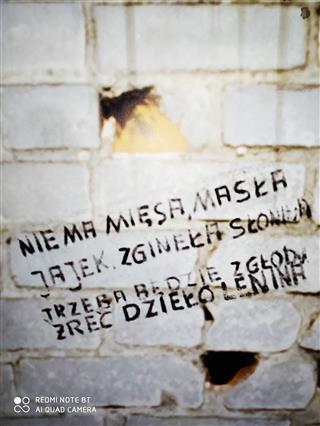 NIE MA MIĘSA, MASŁA
JAJEK. ZGINEŁA SŁONINA
TRZEBA BĘDZIE Z GŁODU
ŻREĆ DZIEŁO LENINA
REDMI NOTE 8T
AI QUAD CAMERA